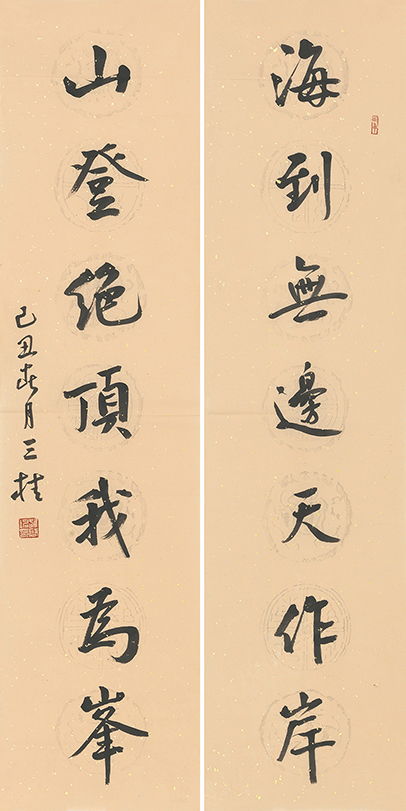 海到無邊天作岸
山登絕頂我為峯
己丑春月三桂